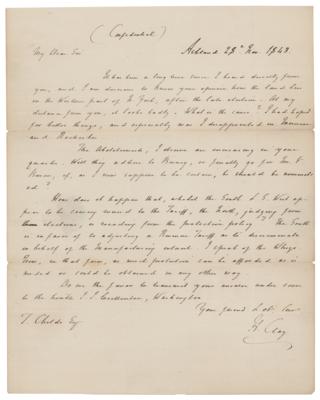 (Confidential)
My Dear Sir
Ashland 28th Nov. 1843.
It has been a long time since I heard directly from
you, and I am desirous to know your opinion how the land lies
in the Western part of N. York, after the late election. At my
distance from you, it looks badly. What is the cause? I had hoped
for better things, and especially was I disappointed in Monroe
and Rochester.
The Abolitionists, I observe are increasing in your
quarter. Will they adhere to Birney, or finally go for Mr. V.
Buren, if, as I now suppose to be certain, he should be nominat-
ed?
How does it happen that, whilst the South & S. West ap-
pear to be coming round to the Tariff, the North, judging from
elections, is receding from the protective policy? The South
is in favor of so adjusting a Revenue Tariff as to discriminate
in behalf of the Manufacturing interest. I speak of the Whigs
Now, in that form, as much protection can be afforded as is
needed or could be obtained in any other way.
Do me the favor to transmit your answer under cover
to the Honble J. J. Crittenden, Washington
Your friend & ob. Serv.
H. Clay
T. Childs Esq